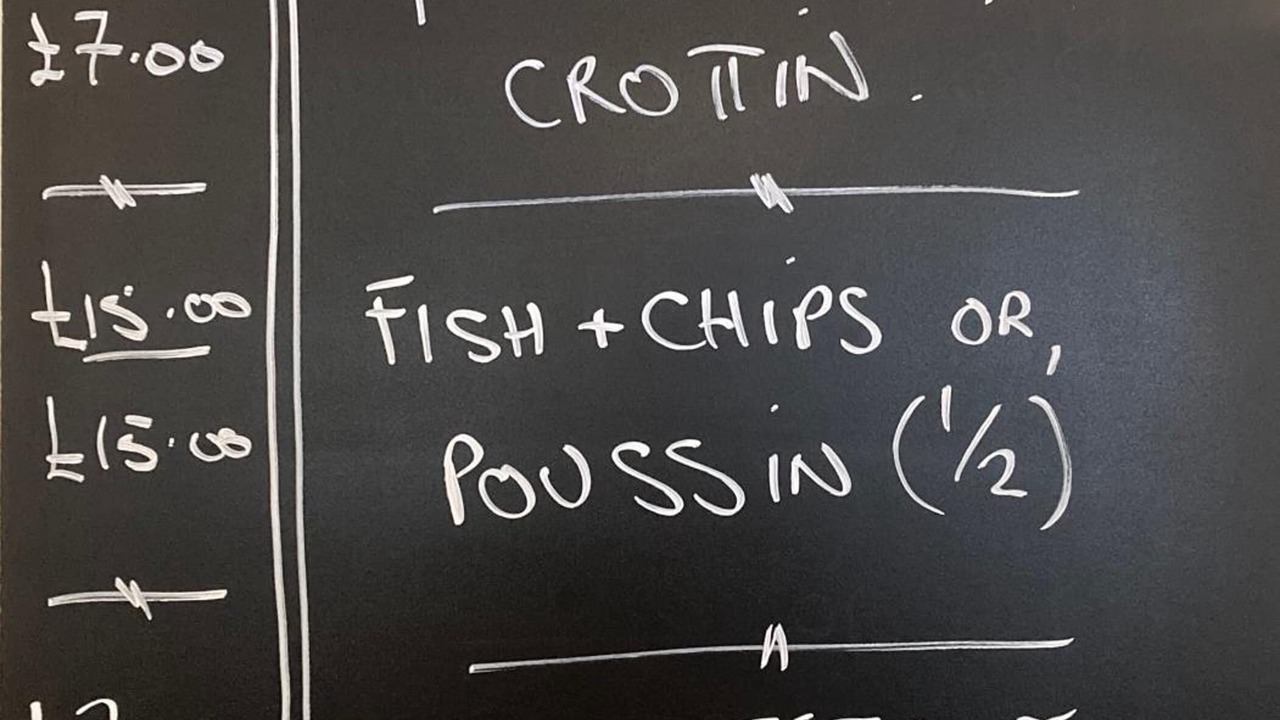 £7.00 CROTTIN.
£15.00 FISH + CHIPS OR,
£15.00 POUSSIN (1/2)